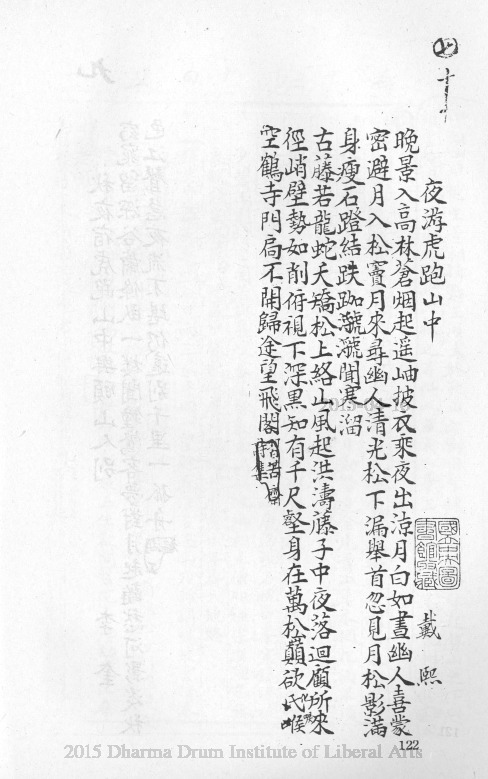 七
十
夜游虎跑山中
戴熙
晚景入高林蒼烟起遥岫披衣乘夜出凉月白如晝幽人喜蒙
密避月入松竇月來尋幽人清光松下漏舉首忽見月松影滿
身瘦石蹬結趺跏㶁㶁聞寒溜
古藤若龍蛇夭矯松上絡山風起洪濤藤子中夜落迴顧所來
徑峭壁勢如削俯視下深黑知有千尺壑身在萬松巔欲
空鶴寺門扃不開歸途望飛閣
國立中央圖書館收藏
122
2015 Dharma Drum Institute of Liberal Arts